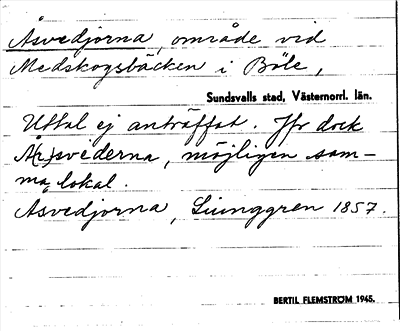 Åsvedjorna, område vid
Medskogsbäcken i Böle,
Sundsvalls stad, Västernorrl. län.
Uttal ej anträffat. Jfr dock
svéderna, möjligen sam-
ma lokal.
Åsvedjorna, Ljunggren 1857.
BERTIL FLEMSTRÖM 1945.